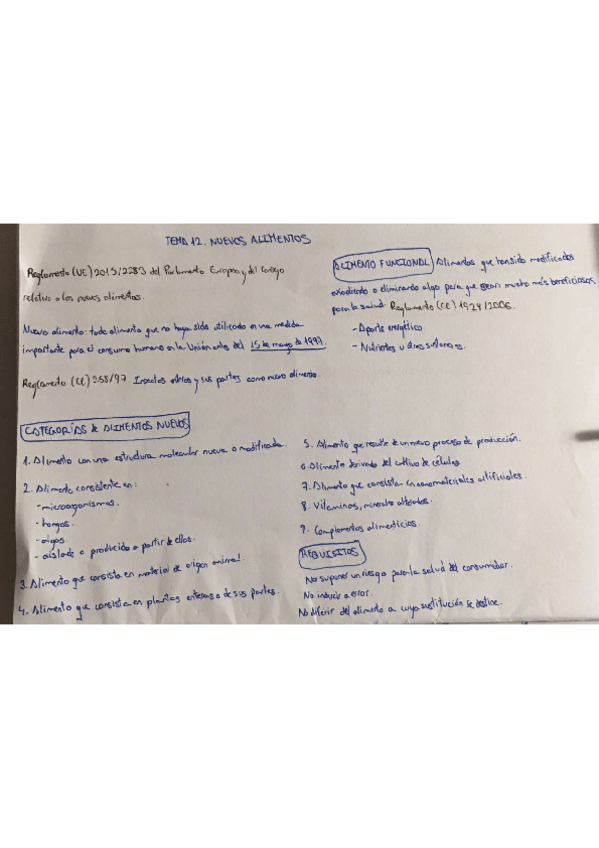 TEMA 12. NUEVOS ALIMENTOS
Reglamento (UE) 2015/2283 del Parlamento Europeo y del Consejo
relativo a los nuevos alimentos.
Nuevo alimento: todo alimento que no haya sido utilizado en una medida
importante para el consumo humano en la Unión antes del 15 de mayo de 1997.
Reglamento (CE) 258/97. Insectos enteros y sus partes como nuevo alimento.
CATEGORÍAS de ALIMENTOS NUEVOS
1. Alimento con una estructura molecular nueva o modificada.
2. Alimento consistente en:
- microorganismos.
- hongos.
- algas.
- aislado o producido a partir de ellos.
3. Alimento que consista en material de origen animal.
4. Alimento que consista en plantas enteras o de sus partes.
ALIMENTO FUNCIONAL Alimentos que han sido modificados
añadiendo o eliminando algo para que sean mucho más beneficiosos
para la salud. Reglamento (CE) 1924/2006.
- Aporte energético
- Nutrientes u otras sustancias.
5. Alimento que resulte de un nuevo proceso de producción.
6. Alimento derivado del cultivo de células
7. Alimento que consista en nanomateriales artificiales.
8. Vitaminas, minerales obtenidos.
9. Complementos alimenticios.
REQUISITOS
No suponer un riesgo para la salud del consumidor.
No inducir a error.
No diferir del alimento a cuya sustitución se destine.